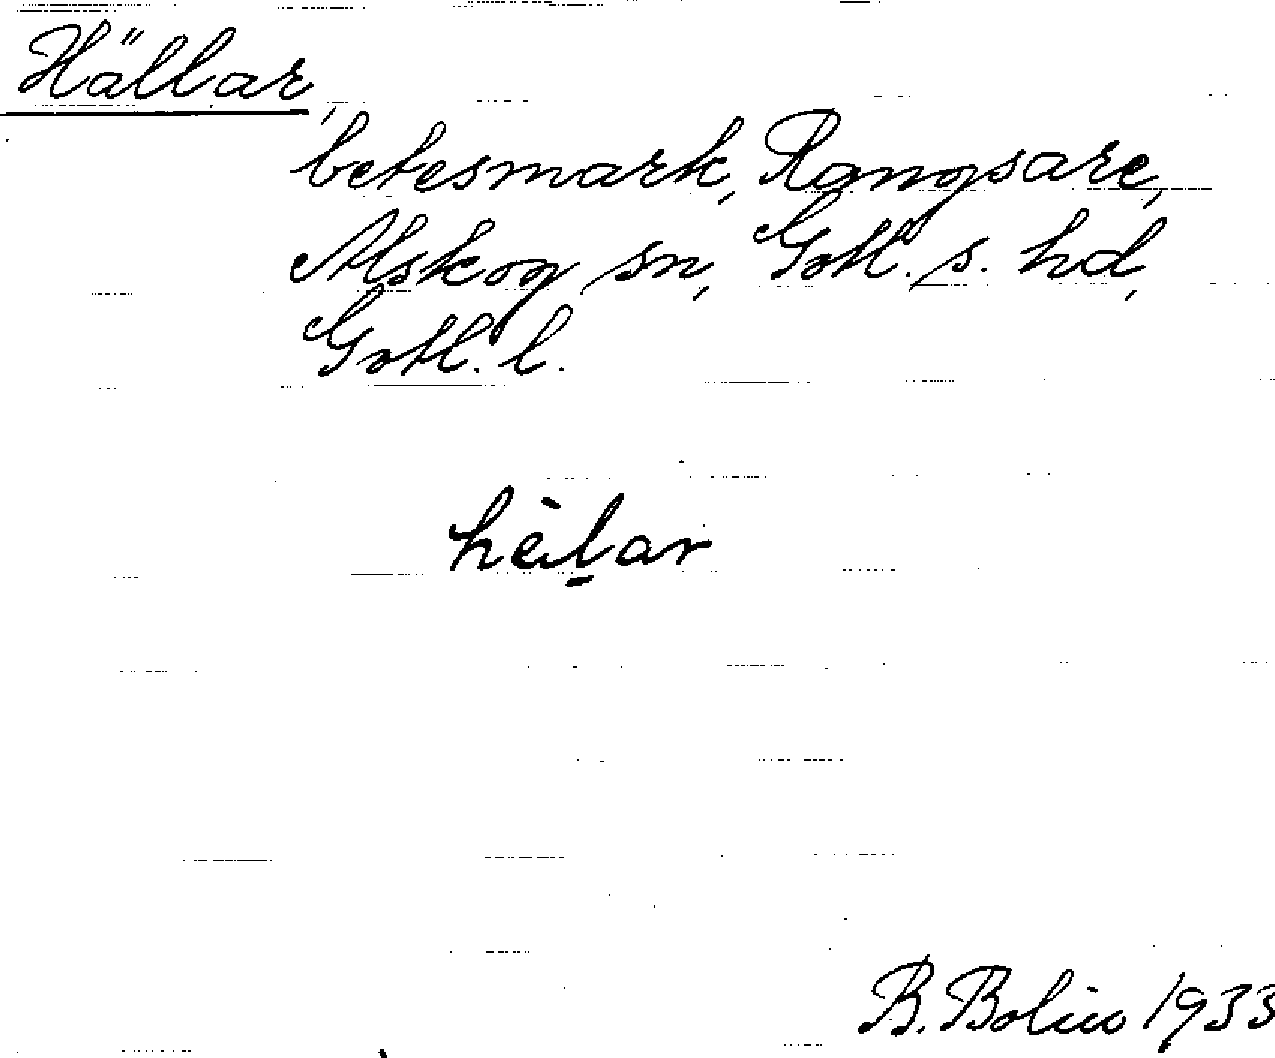 Hällar,
betesmark, Rangsare,
Alskog sn, Gotl. s. hd,
Gotl. l.
hèḷar
B. Bolin 1933